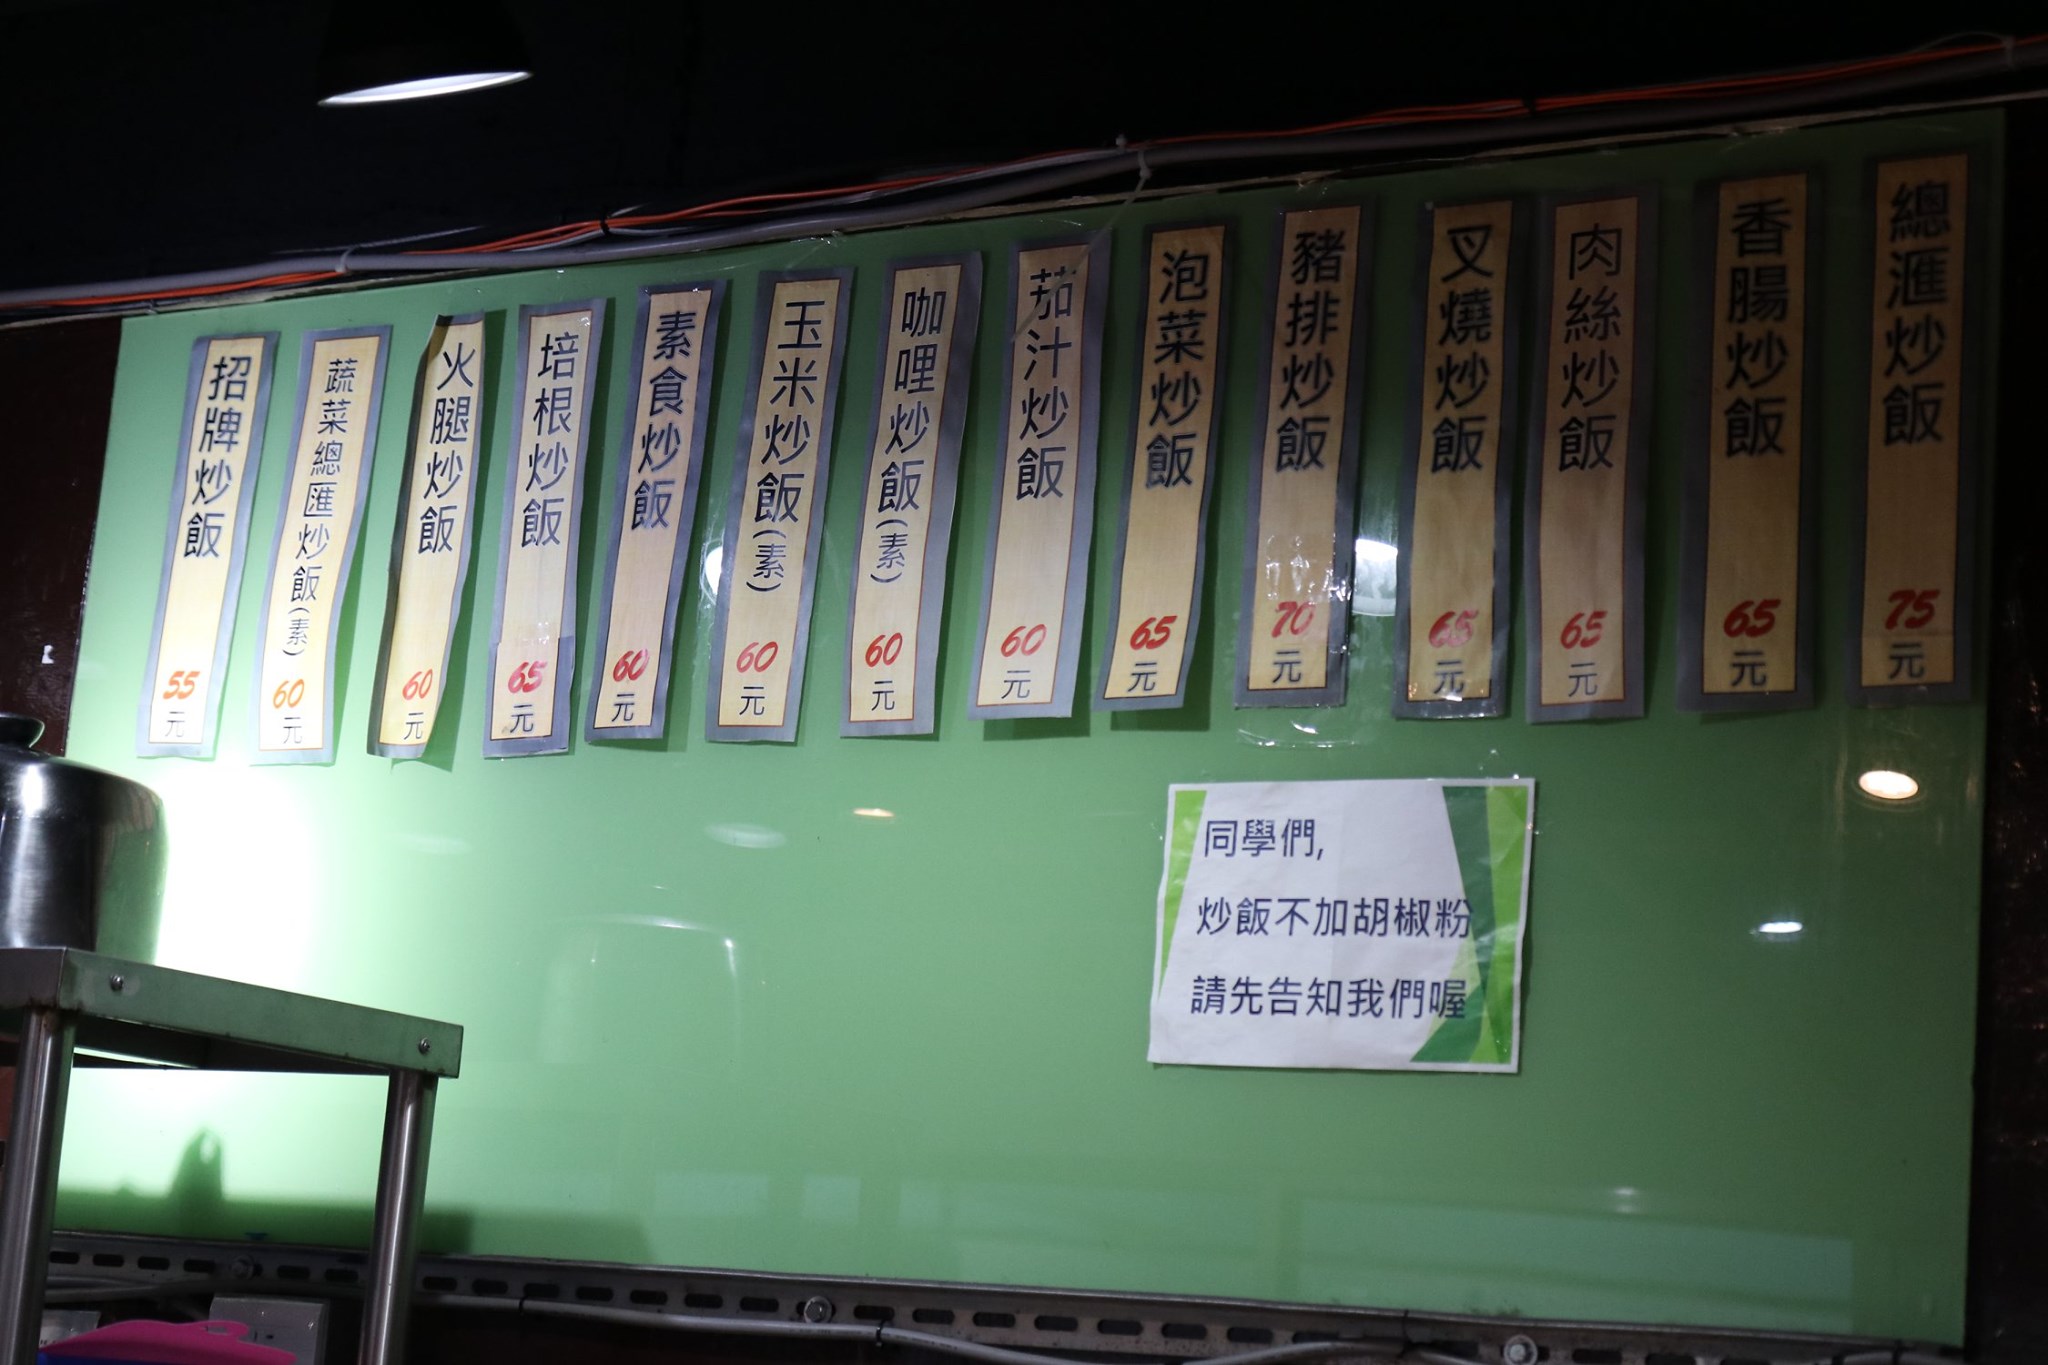 招牌炒飯 55元
蔬菜總匯炒飯(素) 60元
火腿炒飯 60元
培根炒飯 65元
素食炒飯 60元
玉米炒飯(素) 60元
咖哩炒飯(素) 60元
茄汁炒飯 60元
泡菜炒飯 65元
豬排炒飯 70元
叉燒炒飯 65元
肉絲炒飯 65元
香腸炒飯 65元
總滙炒飯 75元
同學們,
炒飯不加胡椒粉
請先告知我們喔